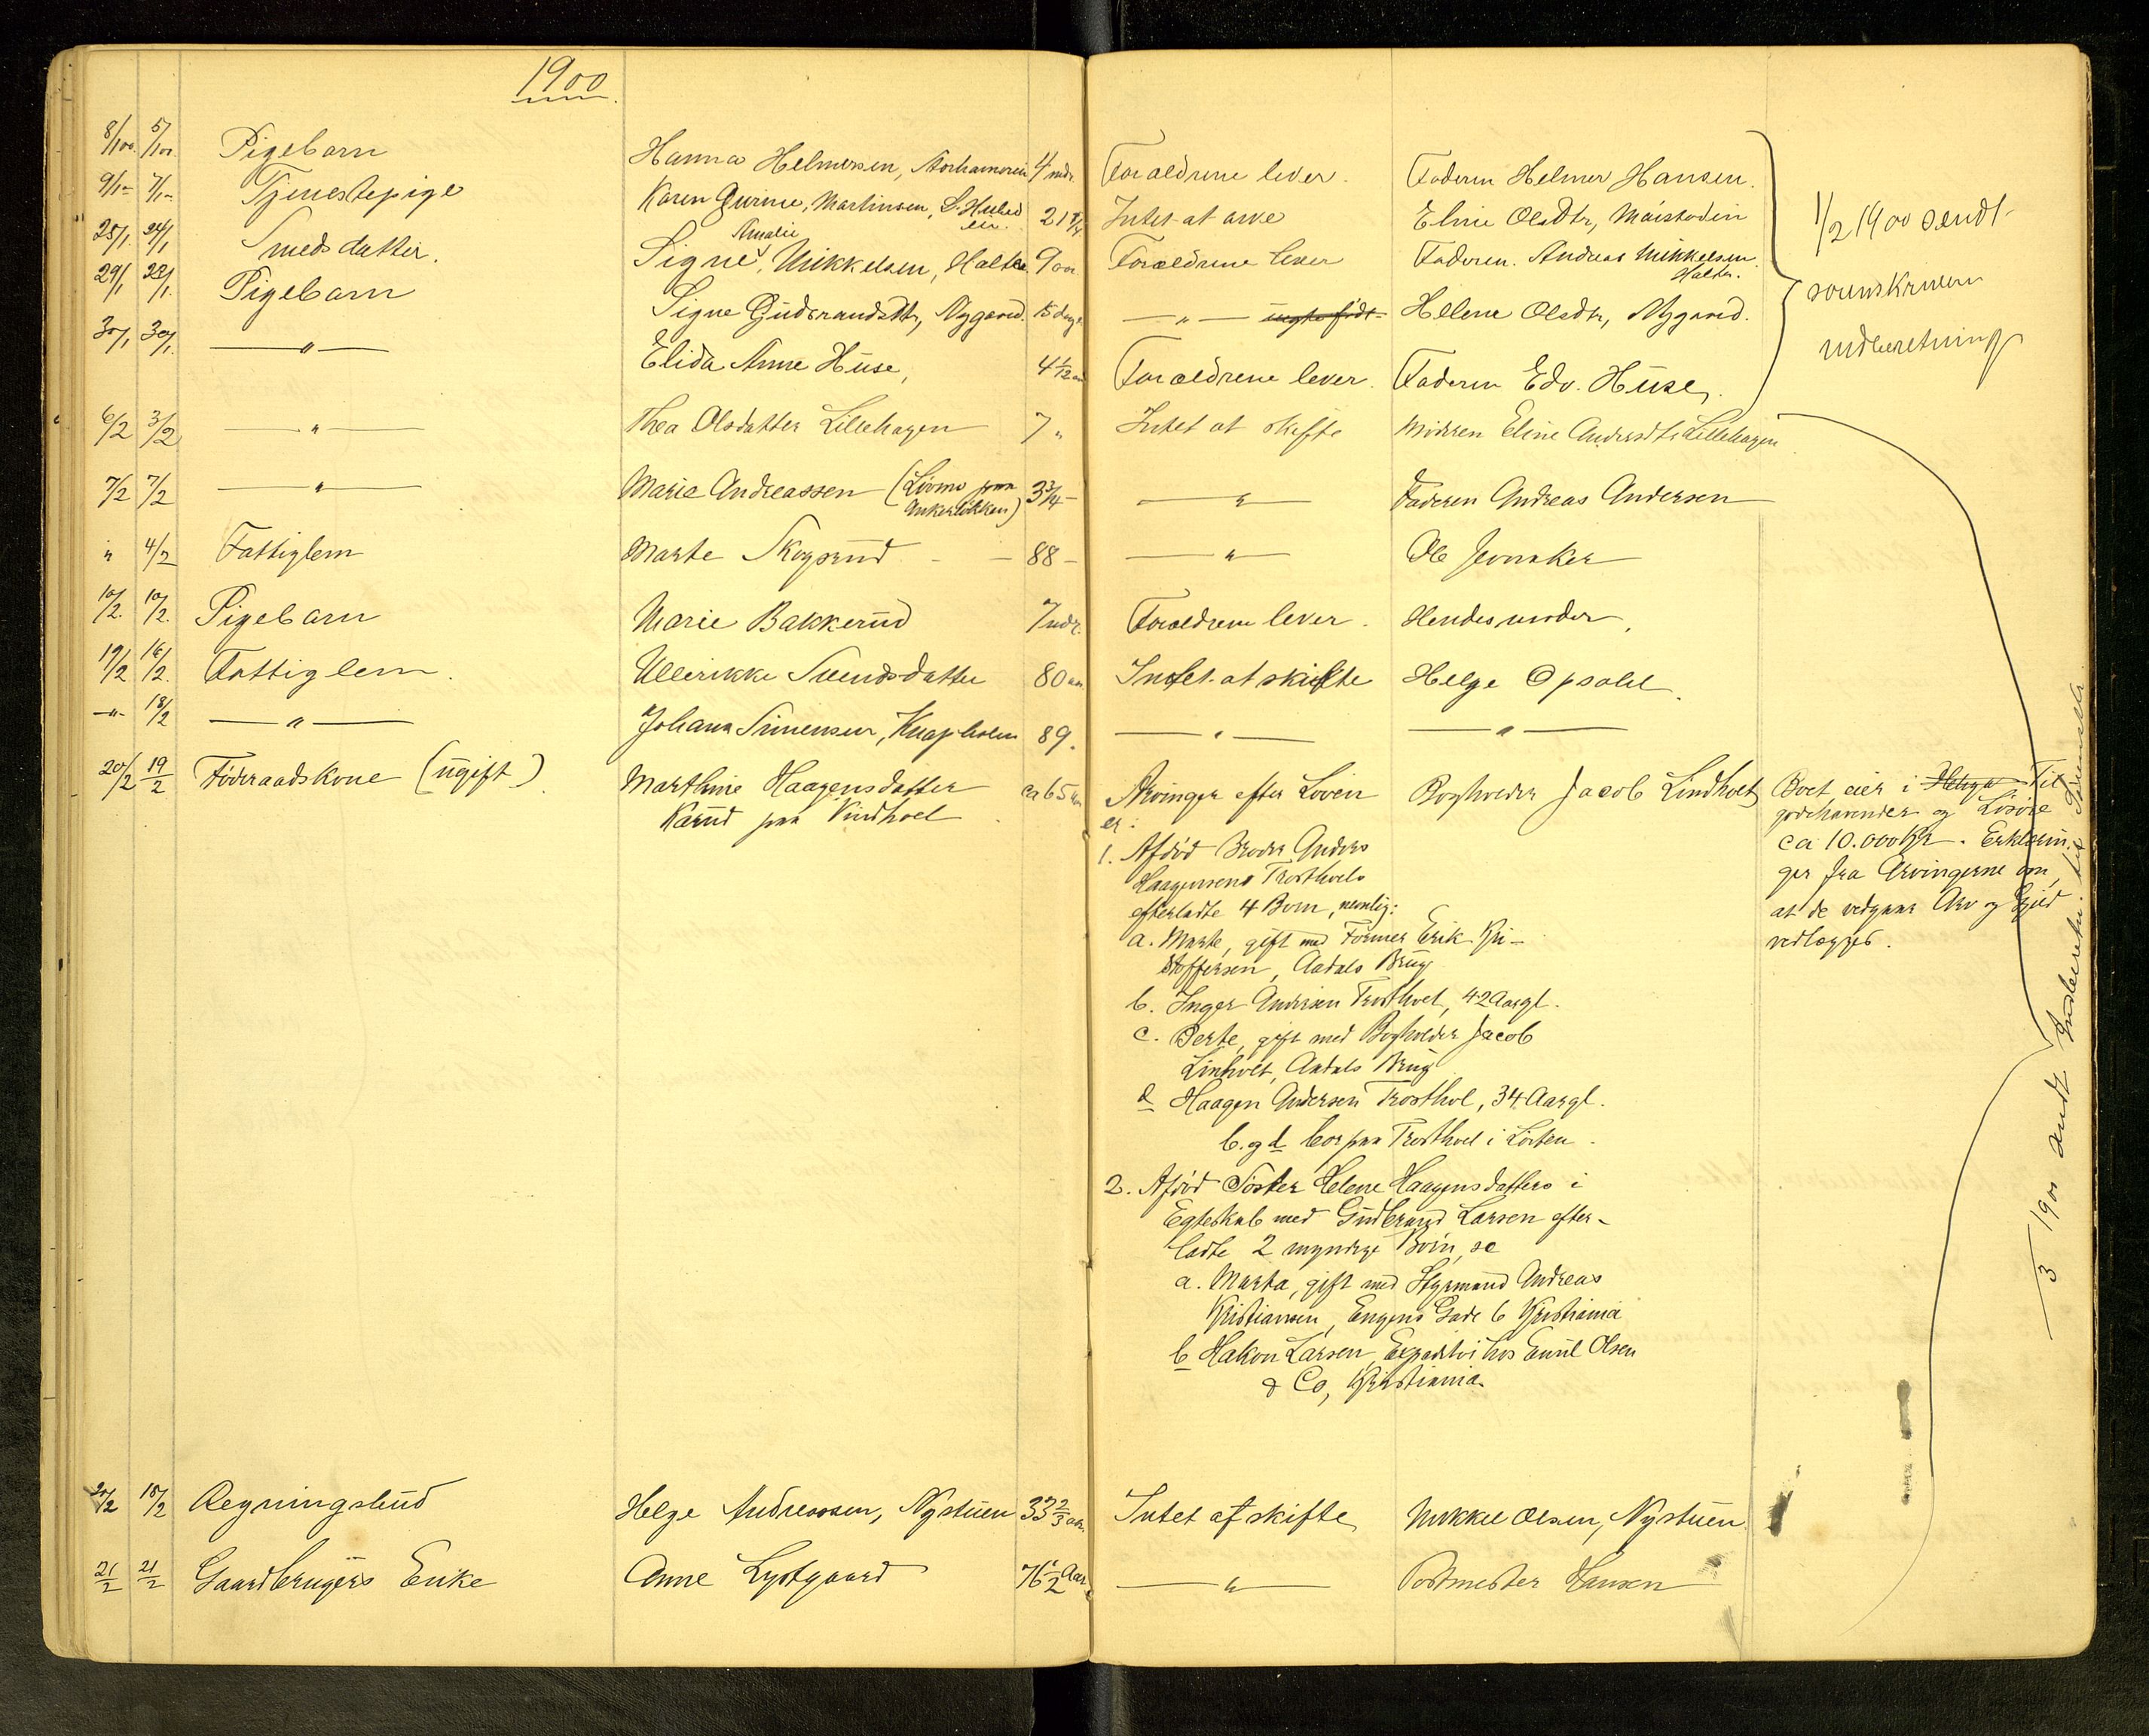 1900
8/1 00. 5/1 00. Pigebarn Hanna Helmersen, 4 mdr. Forældrene lever. Faderen Helmer Hansen.
9/1 - 7/1 - Tjenestepige Karen Gurine, Martinsen, 21 Intet at arve Eline Olsdtr,
25/1. 24/1 Smeds datter. Signe Amalie Mikkelsen, Halter 9 aar. Forældrene lever Faderen. Andreas Mikkelsen
Halter.
29/1 28/1. Pigebarn Signe Gudbrandsdtr, Nygaard. 15 dage — " — Helene Olsdtr, Nygaard.
30/1 30/1. — " — Elida Anne Huse, 4 1/12 aar Forældrene lever. Faderen Edv. Huse.
1/2 1900 sendt
sorenskriveren
indberetning
6/2 3/2 — " — Thea Olsdatter Lillehagen 7 " Intet at skifte Moderen Eline Andersdtr Lillehagen
7/2 7/2 — " — Marie Andreassen (Livmo paa 3 3/4 - — " — Faderen Andreas Andersen
Ankerløkken)
" 4/2 Fattiglem Marte Skogsrud - — 88 - — " — Ole
10/2. 10/2. Pigebarn Marie Bakkerud 7 mdr. Forældrene lever. Hendes moder.
19/2 16/2. Fattiglem. Ullerikke Svendsdatter 80 aar Intet at skifte Helge Opsahl.
— " — 18/2 — " — Johana Simensen, 89. — " — — " —
20/2 19/2 Føderaadskone (ugift) Marthine Haagensdatter ca 65 aar Arvinger efter Loven Bogholder Jacob Lindholt
Karud paa Vindhoel
er:
Boet eier i Til
godehavender og Løsøre
ca 10.000 Kr. Erklærin-
ger fra Arvingerne om,
at de vedgaar Arv og Gjæld
vedlægges.
1. Afdød Broder Anders
Haagensens Trosthoels
efterladte 4 Børn, nemlig:
a. Marte, gift med Former Erik Kri-
stoffersen, Aadals Brug
b. Inger Andersen Trosthoel, 42 Aargl.
c. Berte, gift med Bogholder Jacob
Linholt, Aadals Brug
d Haagen Andersen Trosthol, 34 Aargl.
b. og d bor paa Trosthoel i Løiten.
2. Afdød Søster Helene Haagensdatters i
Egteskab med Gudbrand Larsen efter-
ladte 2 myndige Børn, se
a. Marta, gift med Styrmand Andreas
Kristiansen, Engens Gade 6 Kristiania
b Hakon Larsen, Expeditør hos Emil Olsen
& Co, Kristiania.
/3 1900 sendt Indberetn. til Sorenskr.
21/2 18/2 Regningsbud Helge Andreassen, Nystuen 33 2/3 aar. Intet at skifte Mikkel Olsen, Nystuen.
21/2 21/2 Gaardbrugers Enke Anne Lystgaard 76 1/2 Aar — " — Postmester Hansen